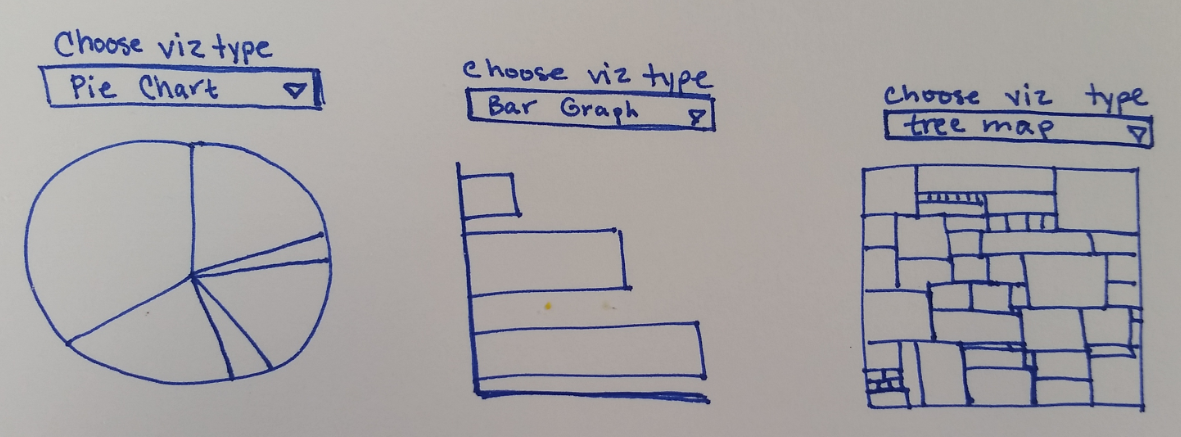 Choose viz type
Pie Chart
choose viz type
Bar Graph
choose viz type
tree map